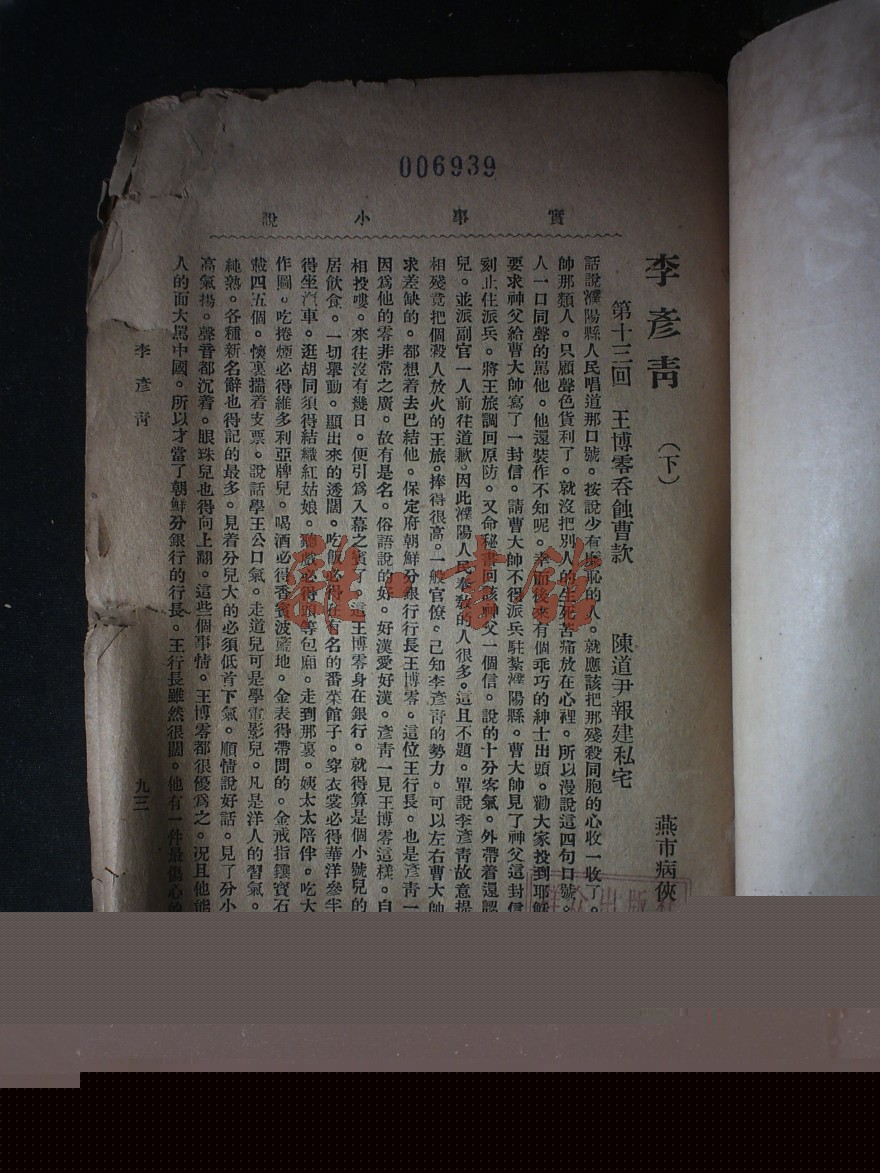 006939
實事小說
李彥青（下）
燕市病俠
第十三回　王博零吞蝕曹款　陳道尹報建私宅
話說濮陽縣人民唱道那口號。按說少有廉恥的人。就應該把那殘殺同胞的心收一收了。
帥那類人。只顧聲色貨利了。就沒把別人的生死苦痛放在心裡。所以漫說這四句口號。
人一口同聲的罵他。他還裝作不知呢。幸而後來有個乖巧的紳士出頭。勸大家投到耶穌
要求神父給曹大帥寫了一封信。請曹大帥不得派兵駐紮濮陽縣。曹大帥見了神父這封信
刻止住派兵。將王旅調回原防。又命秘書回該神父一個信。說的十分客氣。外帶着還認
兒。並派副官一人前往道歉。因此濮陽人民奉教的人很多。這且不題。單說李彥青故意提
相殘竟把個殺人放火的王旅。捧得很高。一般官僚。已知李彥青的勢力。可以左右曹大帥
求差缺的。都想着去巴結他。保定府朝鮮分銀行行長王博零。這位王行長。也是彥青一
因爲他的零非常之廣。故有是名。俗語說的好。好漢愛好漢。彥青一見王博零這樣。自
相投嘍。來往沒有幾日。便引爲入幕之賓了。這王博零身在銀行。就得算是個小號兒的
居飲食。一切舉動。顯出來的透闊。吃飯必得在有名的番菜館子。穿衣裳必得華洋參半
得坐汽車。逛胡同須得結織紅姑娘。聽戲必得頭等包廂。走到那裏。姨太太陪伴。吃大
作圖。吃捲煙必得維多利亞牌兒。喝酒必得香賓波蘭地。金表得帶問的。金戒指鑲寶石
戴四五個。懷裏揣着支票。說話學王公口氣。走道兒可是學電影兒。凡是洋人的習氣。
純熟。各種新名辭也得記的最多。見着分兒大的必須低首下氣。順情說好話。見了分小
高氣揚。聲音都沉着。眼珠兒也得向上翻。這些個事情。王博零都很優爲之。況且他能
人的面大罵中國。所以才當了朝鮮分銀行的行長。王行長雖然很闊。他有一件最傷心的
李彥青
九三
雒一書館
群众出版社